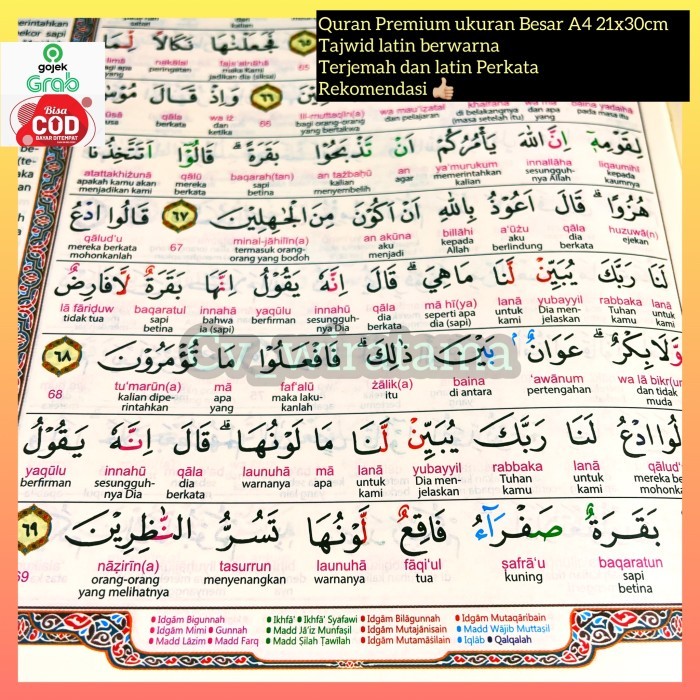 Quran Premium ukuran Besar A4 21x30cm
Tajwid latin berwarna
Terjemah dan latin Perkata
Rekomendasi 👍🏻
gojek
Grab
Bisa
COD
BAYAR DITEMPAT
فَجَعَلْنٰهَا نَكَالًا لِّمَا
faja'alnāhā nakālan
maka Kami jadikan dia (siksa) peringatan
65
٦٦ وَاِذْ قَالَ
li-muttaqīn(a) 66 wa iż qāla
bagi orang-orang yang bertakwa dan ketika berkata
لِقَوْمِهٖٓ اِنَّ اللّٰهَ يَأْمُرُكُمْ اَنْ تَذْبَحُوْا بَقَرَةً ۗ قَالُوْٓا اَتَتَّخِذُنَا
liqaumihī innallāha ya'murukum an tażbaḥū baqarah(tan) qālū atattakhiżunā
kepada kaumnya sesungguhnya Allah memerintahkan kalian agar kalian menyembelih sapi betina mereka berkata apakah kamu akan menjadikan kami
هُزُوًا ۗ قَالَ اَعُوْذُ بِاللّٰهِ اَنْ اَكُوْنَ مِنَ الْجٰهِلِيْنَ ٦٧ قَالُوا ادْعُ
huzuwā(n) qāla a'ūżu billāhi an akūna minal-jāhilīn(a) 67 qālud'u
ejekan dia berkata aku berlindung kepada Allah aku menjadi termasuk orang-orang yang bodoh mereka berkata mohonkanlah
لَنَا رَبَّكَ يُبَيِّنْ لَّنَا مَا هِيَ ۗ قَالَ اِنَّهٗ يَقُوْلُ اِنَّهَا بَقَرَةٌ لَّا فَارِضٌ
lanā rabbaka yubayyil lanā mā hī(ya) qāla innahū yaqūlu innahā baqaratul lā fāriḍuw
untuk kami Tuhan kamu Dia menjelaskan untuk kami seperti apa dia (sapi) dia berkata sesungguhnya Dia berfirman bahwa ia (sapi) sapi betina tidak tua
وَّلَا بِكْرٌ ۗ عَوَانٌۢ بَيْنَ ذٰلِكَ ۗ فَافْعَلُوْا مَا تُؤْمَرُوْنَ ٦٨
wa lā bikr(un) 'awānum baina żālik(a) faf'alū mā tu'marūn(a) 68
dan tidak muda pertengahan di antara itu maka lakukanlah apa yang kalian diperintahkan
قَالُوا ادْعُ لَنَا رَبَّكَ يُبَيِّنْ لَّنَا مَا لَوْنُهَا ۗ قَالَ اِنَّهٗ يَقُوْلُ
qālud' lanā rabbaka yubayyil lanā mā launuhā qāla innahū yaqūlu
mereka be mohonk untuk kami Tuhan kamu Dia menjelaskan untuk kami apa warnanya dia berkata sesungguhnya Dia berfirman
بَقَرَةٌ صَفْرَاۤءُ فَاقِعٌ لَّوْنُهَا تَسُرُّ النّٰظِرِيْنَ ٦٩
baqaratun ṣafrā'u fāqi'ul launuhā tasurrun nāẓirīn(a) 69
sapi betina kuning tua warnanya menyenangkan orang-orang yang melihatnya
Idgām Bigunnah Ikhfā' Ikhfā' Syafawi Idgām Bilāgunnah Idgām Mutaqāribain
Idgām Mimi Gunnah Madd Jā'iz Munfaṣil Idgām Mutajānisain Madd Wājib Muttaṣil
Madd Lāzim Madd Farq Madd Ṣilah Ṭawīlah Idgām Mutamāṡilain Iqlāb Qalqalah